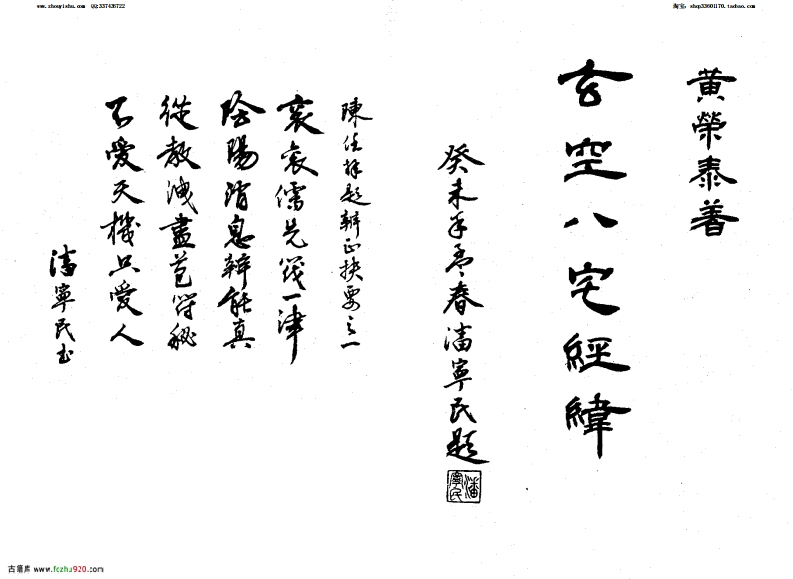 www.zhouyishu.com 黄QQ:337436722
淘宝: shop33601170.taobao.com
黃榮泰著
玄空八宅經緯
癸未年孟春潘寧民題
潘寧民
陳仕祥題辨正抉要之一
袞袞儒兄筏一津
陰陽消息辨能真
從教洩盡苞符秘
不愛天機只愛人
潘寧民書
古籍库 www.fczhu920.com